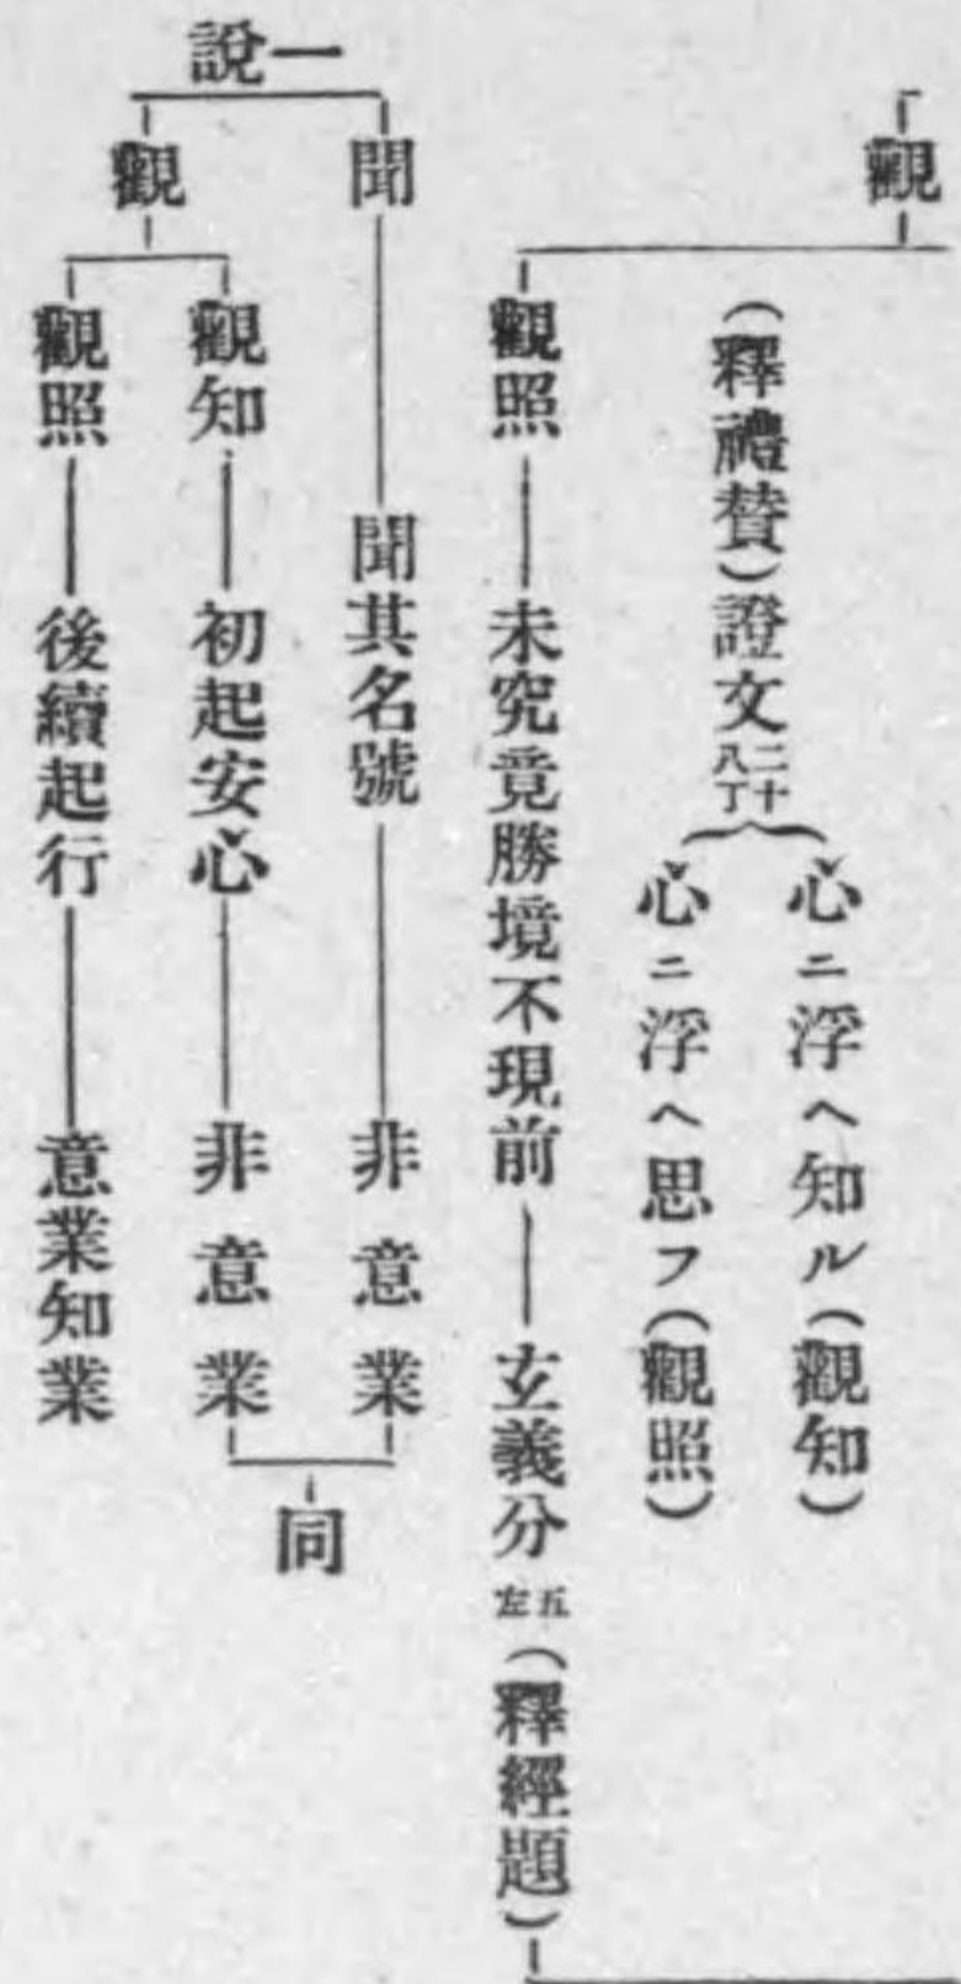 觀
(釋禮贊)證文二十八丁
心ニ浮ヘ知ル(觀知)
心ニ浮ヘ思フ(觀照)
觀照 未究竟勝境不現前 玄義分五左(釋經題)
一說
聞 聞其名號 非意業
觀
觀知 初起安心 非意業
同
觀照 後續起行 意業知業